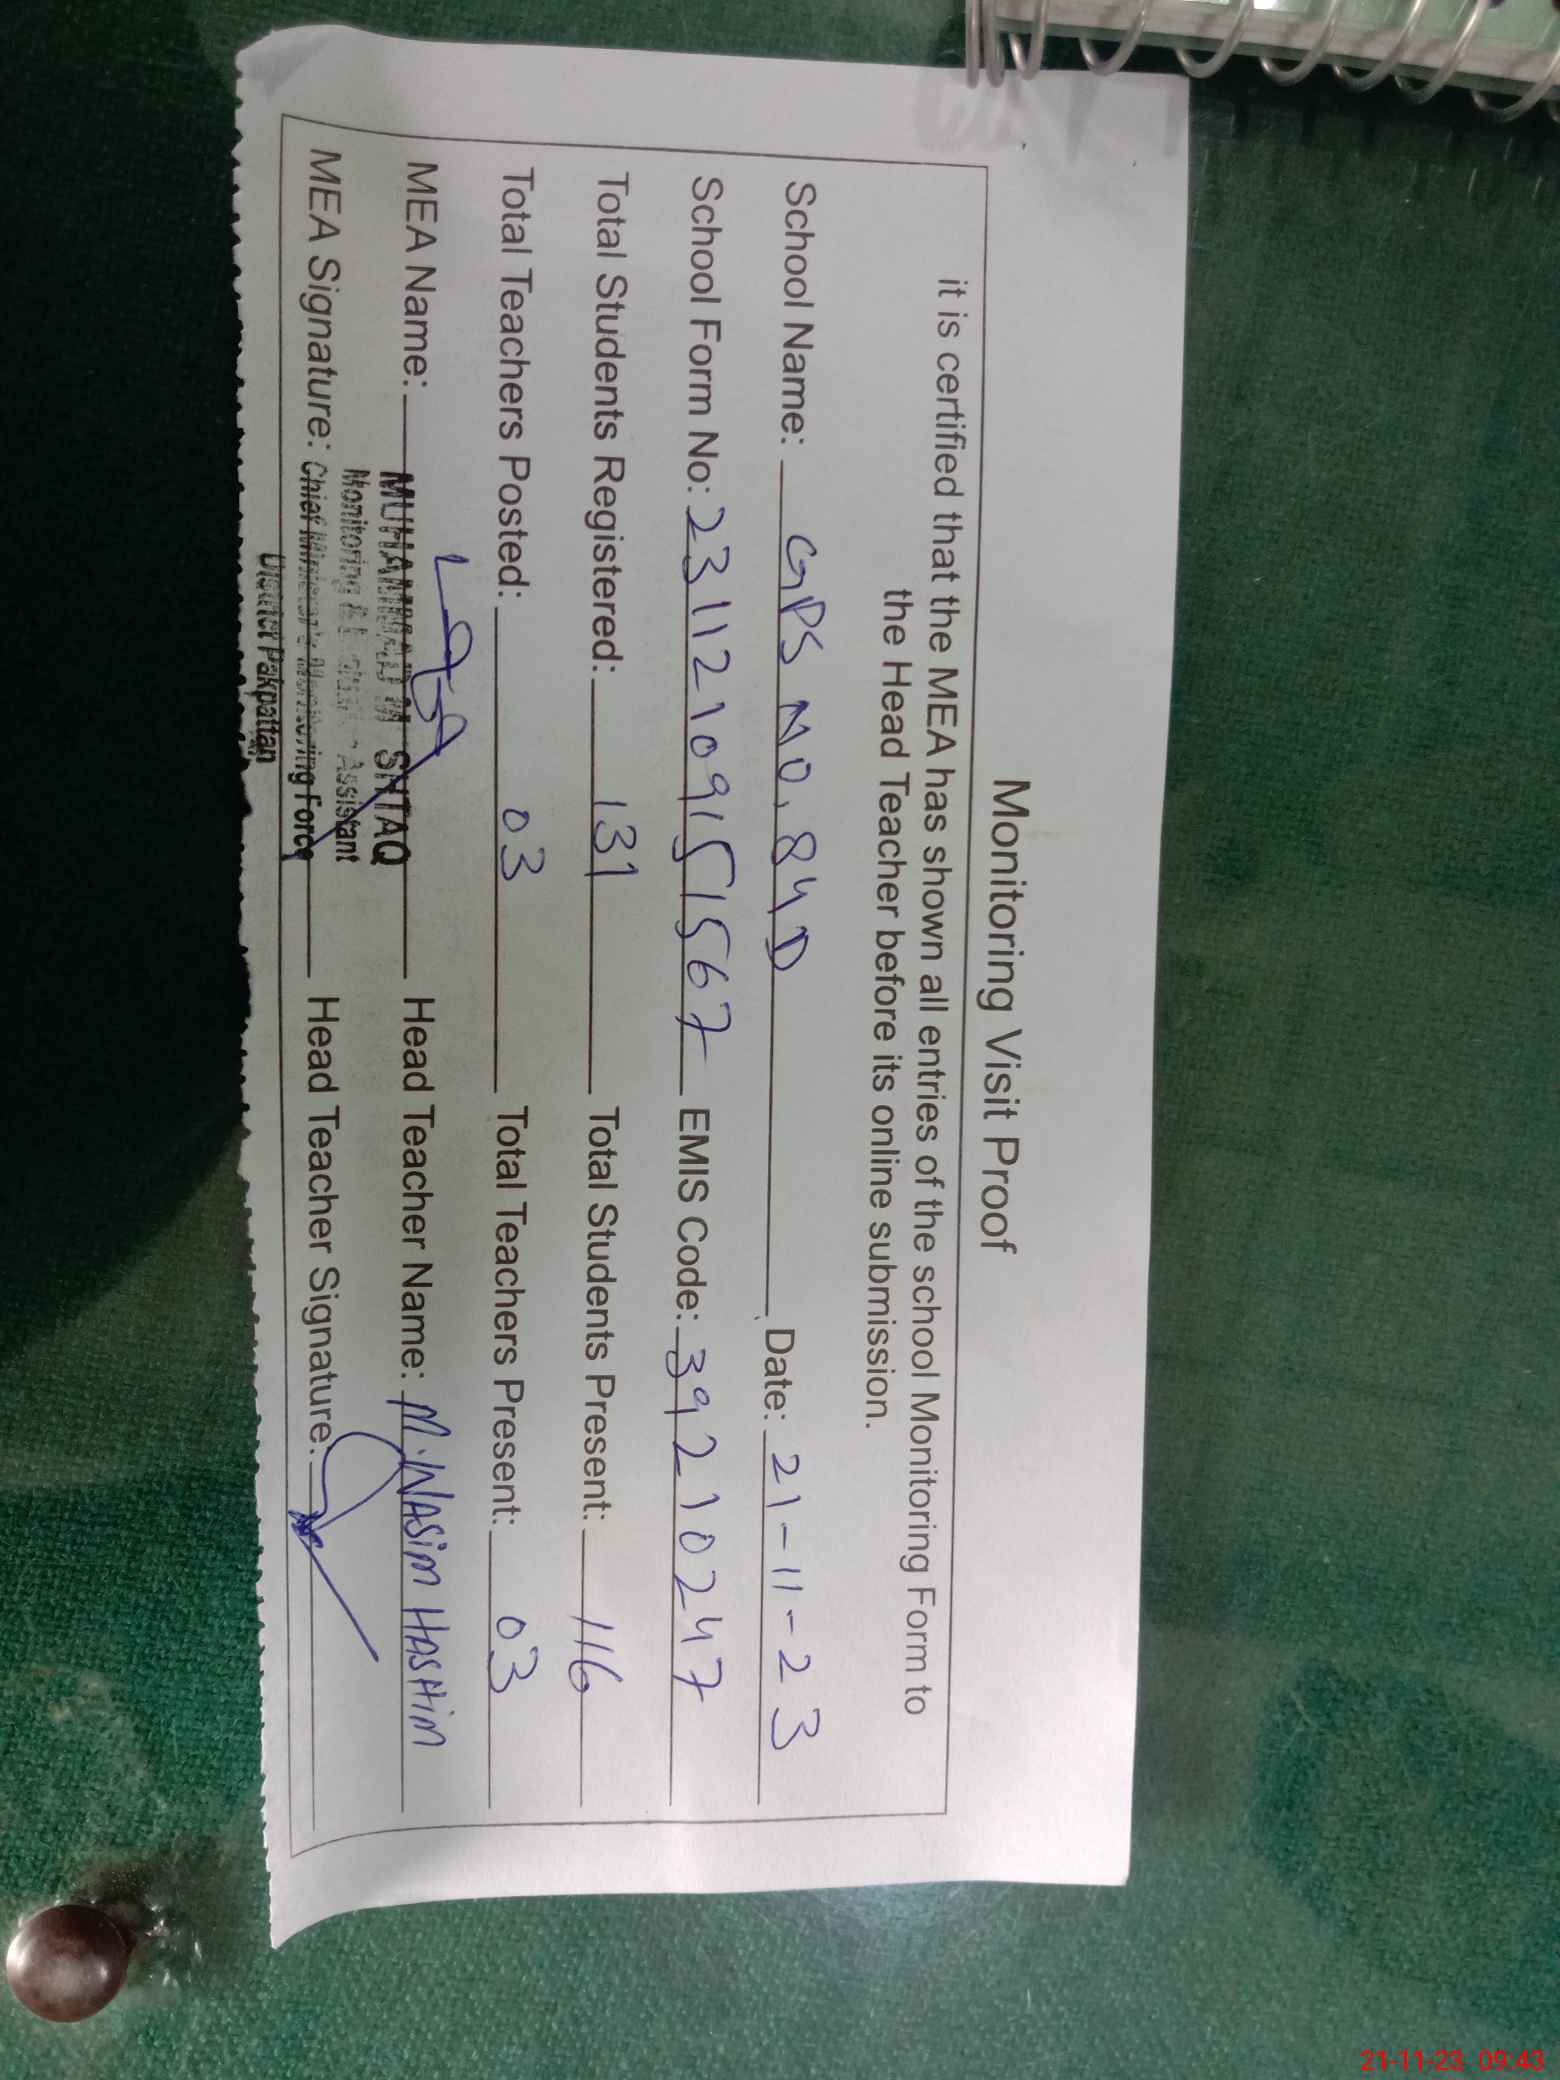 Monitoring Visit Proof
it is certified that the MEA has shown all entries of the school Monitoring Form to
the Head Teacher before its online submission.
School Name: GPS NO. 84D Date: 21-11-23
School Form No: 23112109151567 EMIS Code: 39210247
Total Students Registered: 131 Total Students Present: 116
Total Teachers Posted: 03 Total Teachers Present: 03
MEA Name: MUHAMMAD Head Teacher Name: M. WASIM HASHIM
Monitoring & Assistant
MEA Signature: Chief Minister's Monitoring Force Head Teacher Signature:
District Pakpattan
21-11-23 09:43